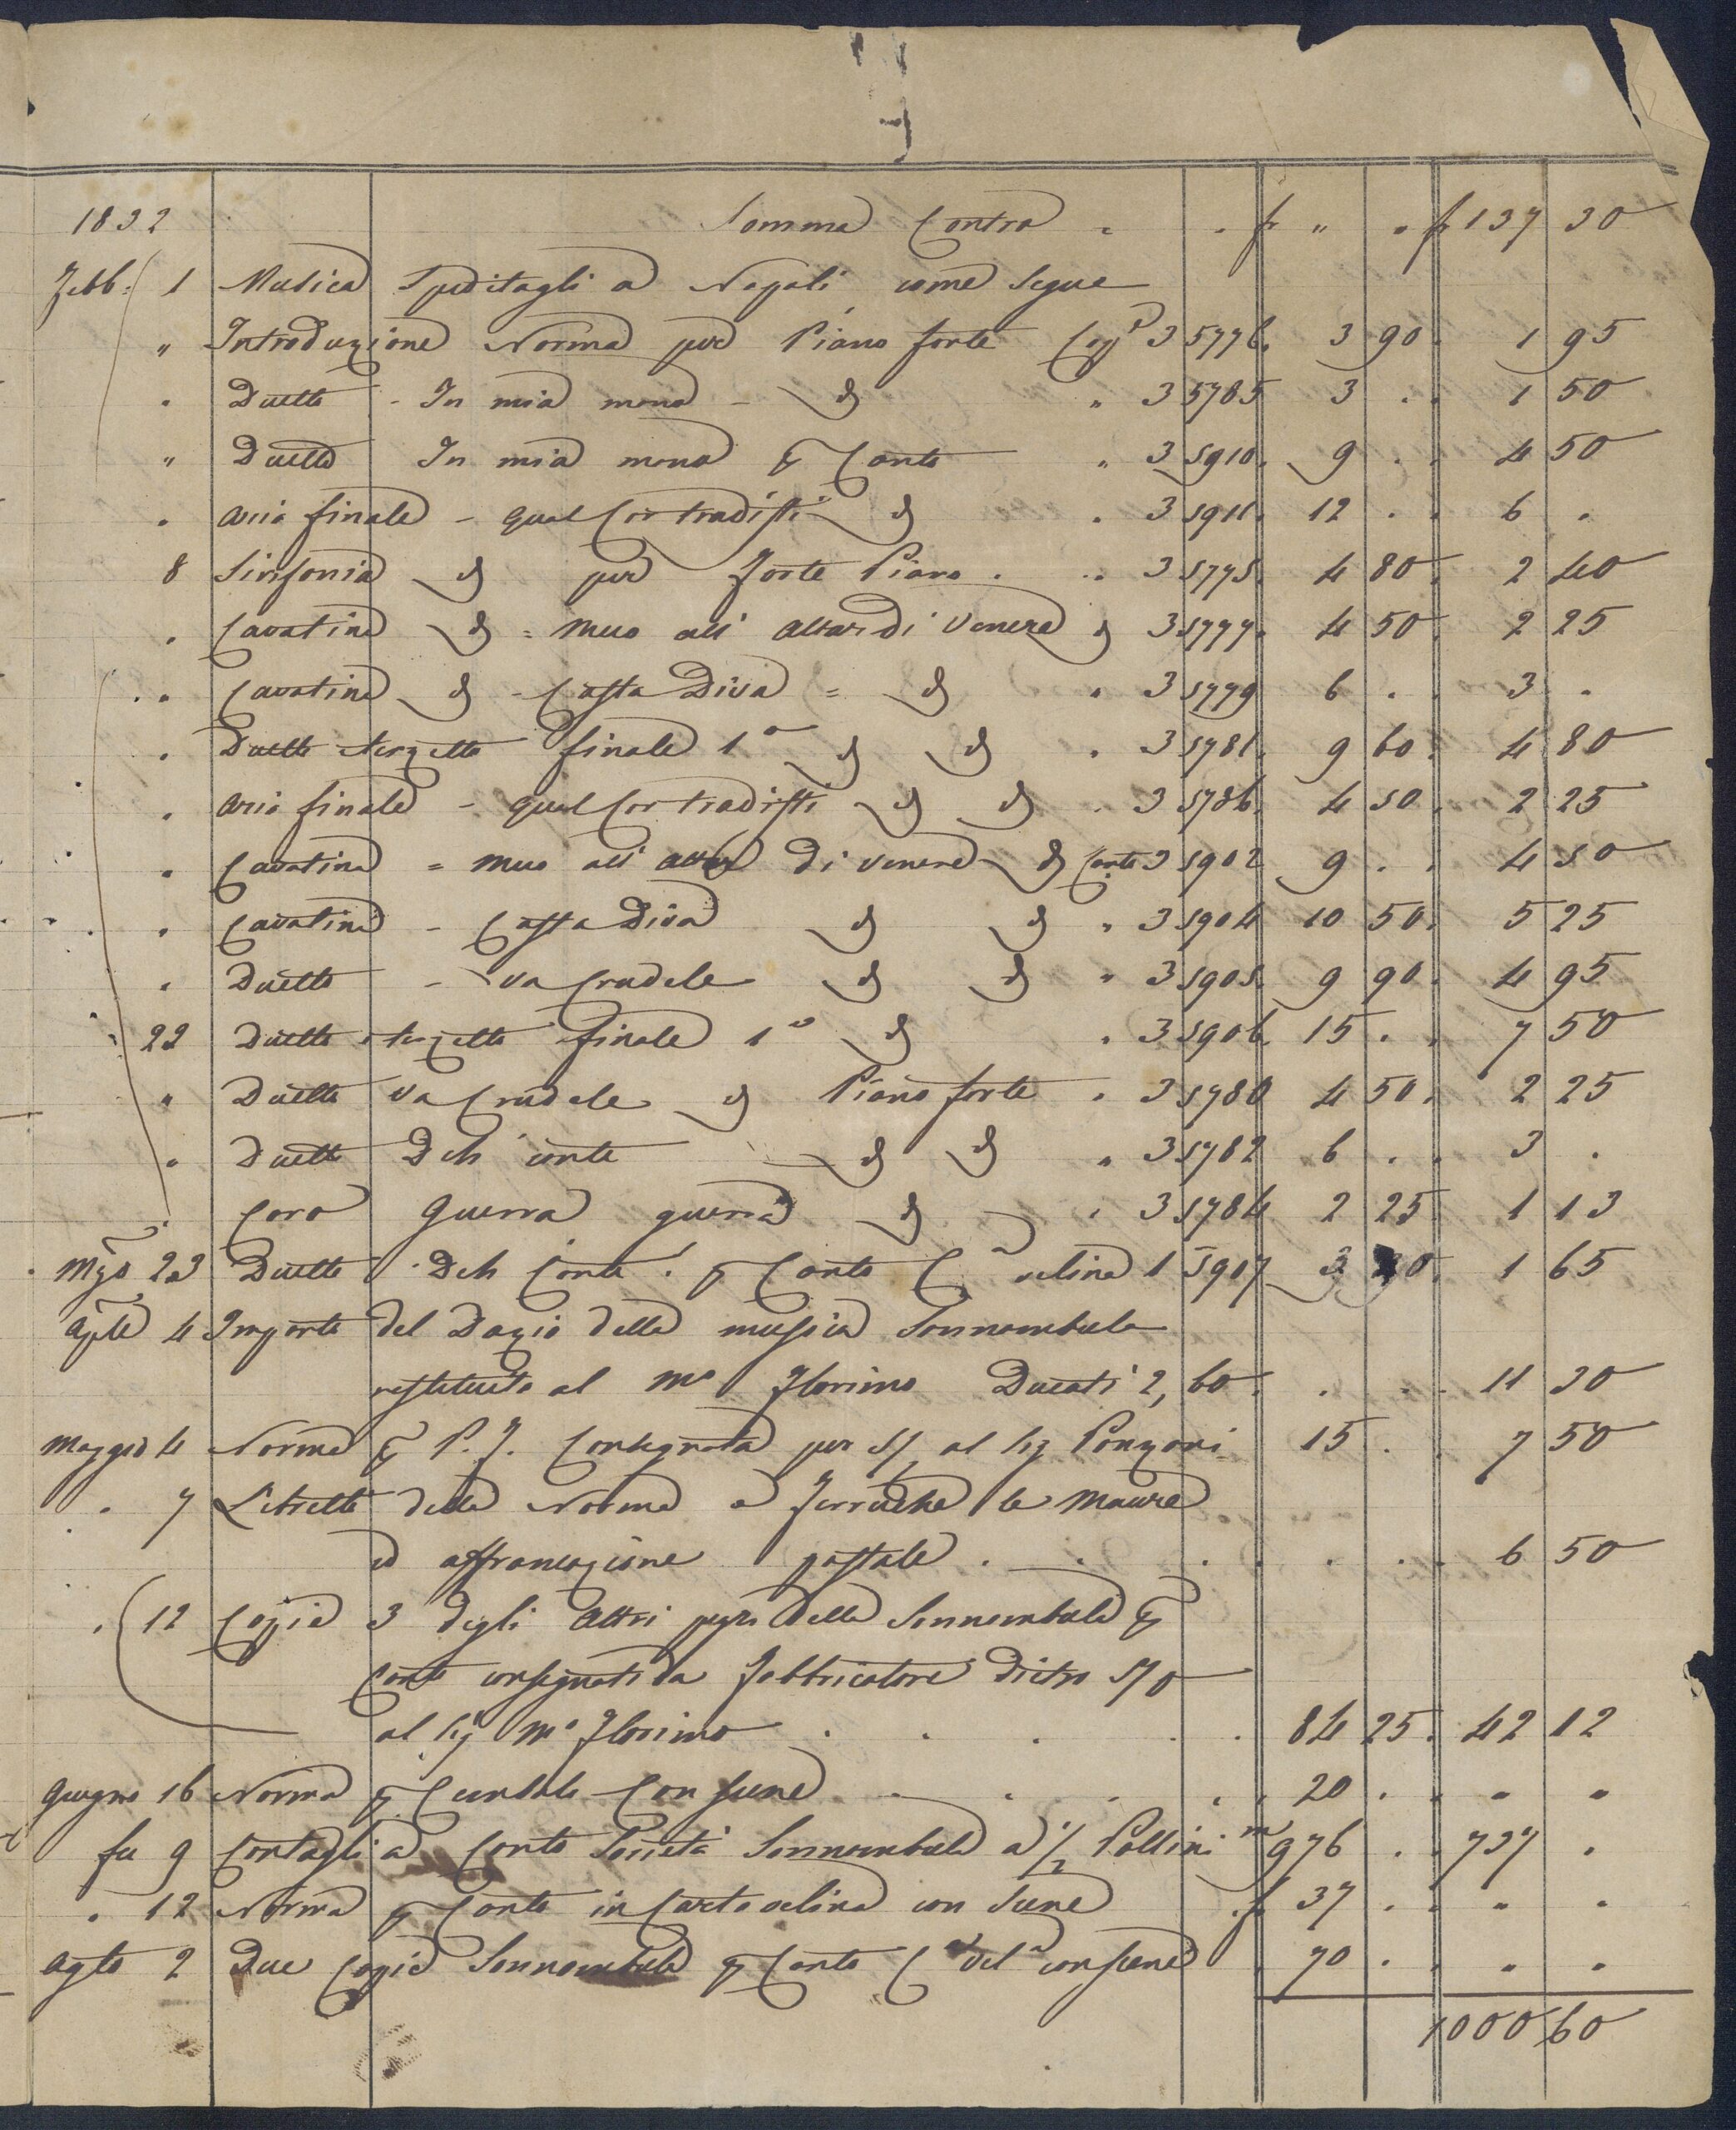 1832 Somma Contro " . fr " . fr 137 30
Febb: 1 Musica Speditagli a Napoli come Segue
" Introduzione Norma per Piano forte Cop.e 3 5776. 3 90. 1 95
" Duetto - In mia mano - d " 3 5785 3 . . 1 50
" Duetto In mia mano p Canto " 3 5910. 9 . . 4 50
" aria finale - qual Cor tradisti d " 3 5911. 12 . . 6 .
8 Sinfonia d per Forte Piano . " 3 5775. 4 80. 2 40
" Cavatina d = Meco all' Altar di Venere d 3 5777. 4 50. 2 25
" Cavatina d - Casta Diva = d " 3 5779 6 . . 3 .
" Duetto e terzetto finale 1o d d " 3 5781. 9 60. 4 80
" aria finale - qual Cor tradisti d d . 3 5786. 4 50. 2 25
" Cavatina = Meco all' altar di venere d Canto 3 5902 9 . . 4 50
" Cavatina - Casta Diva d d " 3 5904 10 50. 5 25
" Duetto - Va Crudele d d " 3 5905. 9 90. 4 95
22 Duetto e terzetto finale 1o d " 3 5906 15 . . 7 50
" Duetto Va Crudele d Piano forte . 3 5780 4 50. 2 25
" Duetto Deh conte d d " 3 5782 6 . . 3 .
" Coro Guerra guerra d " 3 5784 2 25. 1 13
Mzo 23 Duetto . Deh Conte . p Canto Ca velina 1 5907 3 30. 1 65
Aple 4 Importo del Dazio della musica Sonnambula
restituito al Mo Florimo Ducati 2,60. . . 11 30
Maggio 4 Norma p P. F. Consegnata per S/ al Sig Ponzoni 15 . . 7 50
. 7 Libretti della Norma a le Maure
ed affrancazione postale . . . . . . 6 50
. 12 Copie 3 degli Altri pezzi della Sonnambula p
Canto consegnati da Fabbricatore dietro S/o
al Sig Mo Florimo . . . . 84 25. 42 12
Giugno 16 Norma p Cembalo Con Scene . . . . 20 . . " "
fu 9 a Conto Società Sonnambula a 1/2 Pollini 976 . . 737 .
. 12 Norma p Canto in Carta velina con Scene . f 37 . . " .
Agto 2 Due Copie Sonnambula p Canto Ca vel.a con Scene 70 . . " "
1000 60